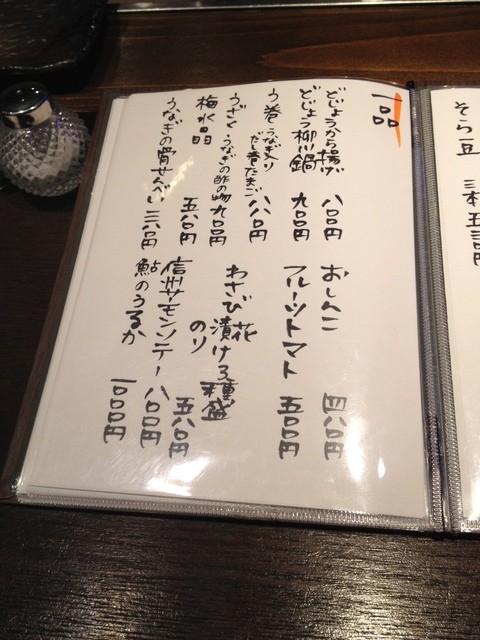 一品
どじょうから揚げ 八〇〇円
どじょう柳川鍋 九〇〇円
う巻 うなぎ入りだし巻たまご 八八〇円
うざく うなぎの酢の物 九〇〇円
梅水晶 五八〇円
うなぎの骨せんべい 三八〇円
おしんこ 四八〇円
フルーツトマト 五〇〇円
わさび 花 のり 漬け3種盛 五八〇円
信州サーモンソテー 八〇〇円
鮎のうるか 一〇〇〇円
そら豆 三本 五三〇円